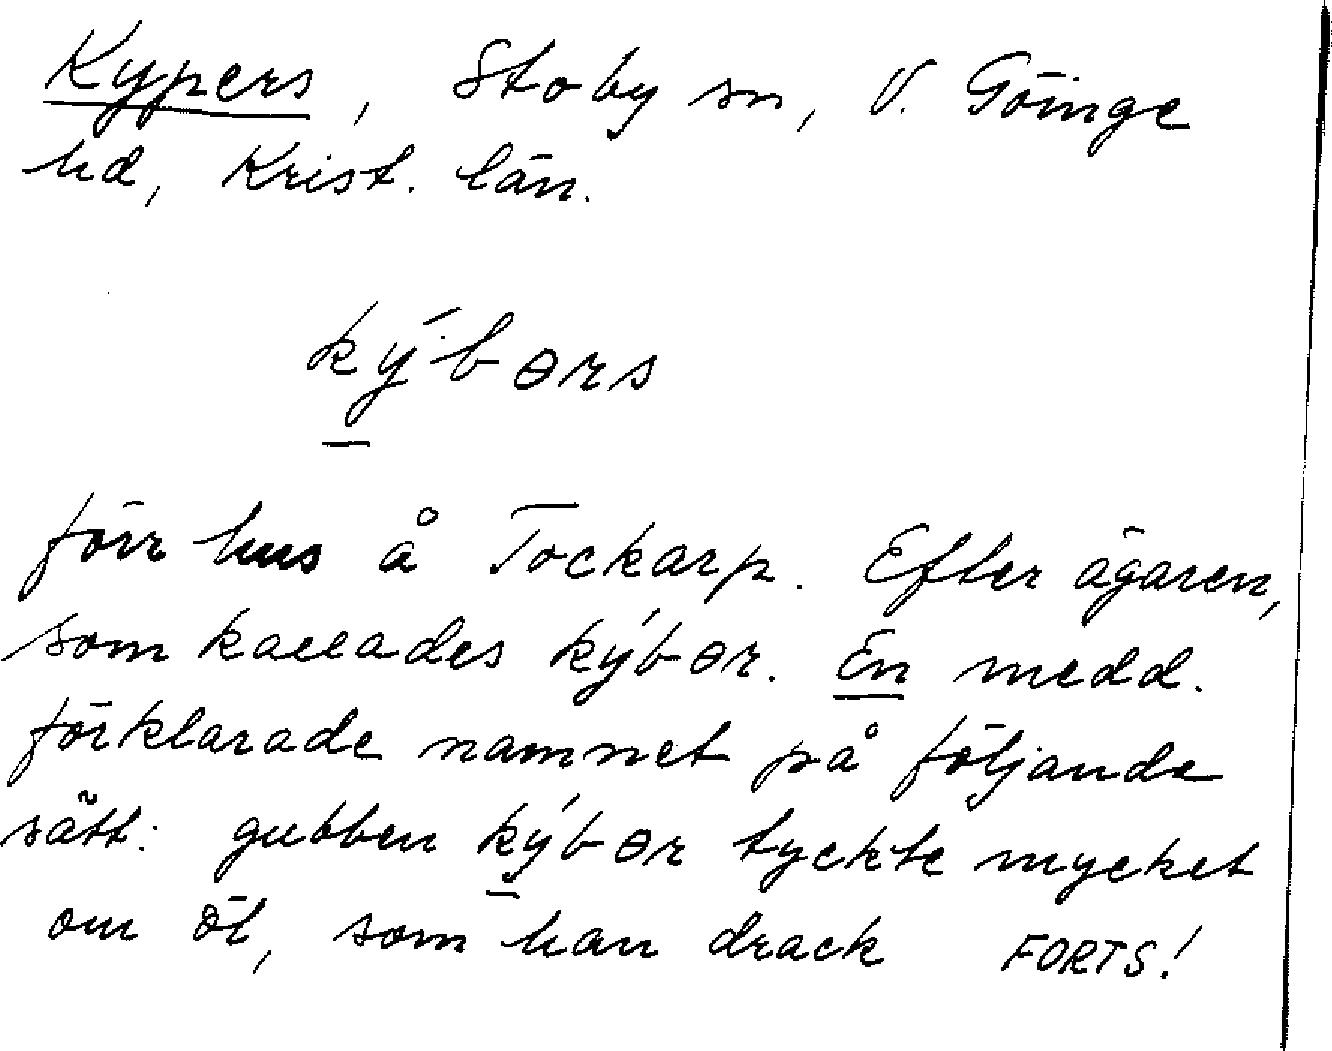 Kypers, Stoby sn, V. Göinge
hd, Krist. län.
ký·bərs
förr hus å Tockarp. Efter ägaren,
som kallades kýbər. En medd.
förklarade namnet på följande
sätt: gubben kýbər tyckte mycket
om öl, som han drack FORTS!